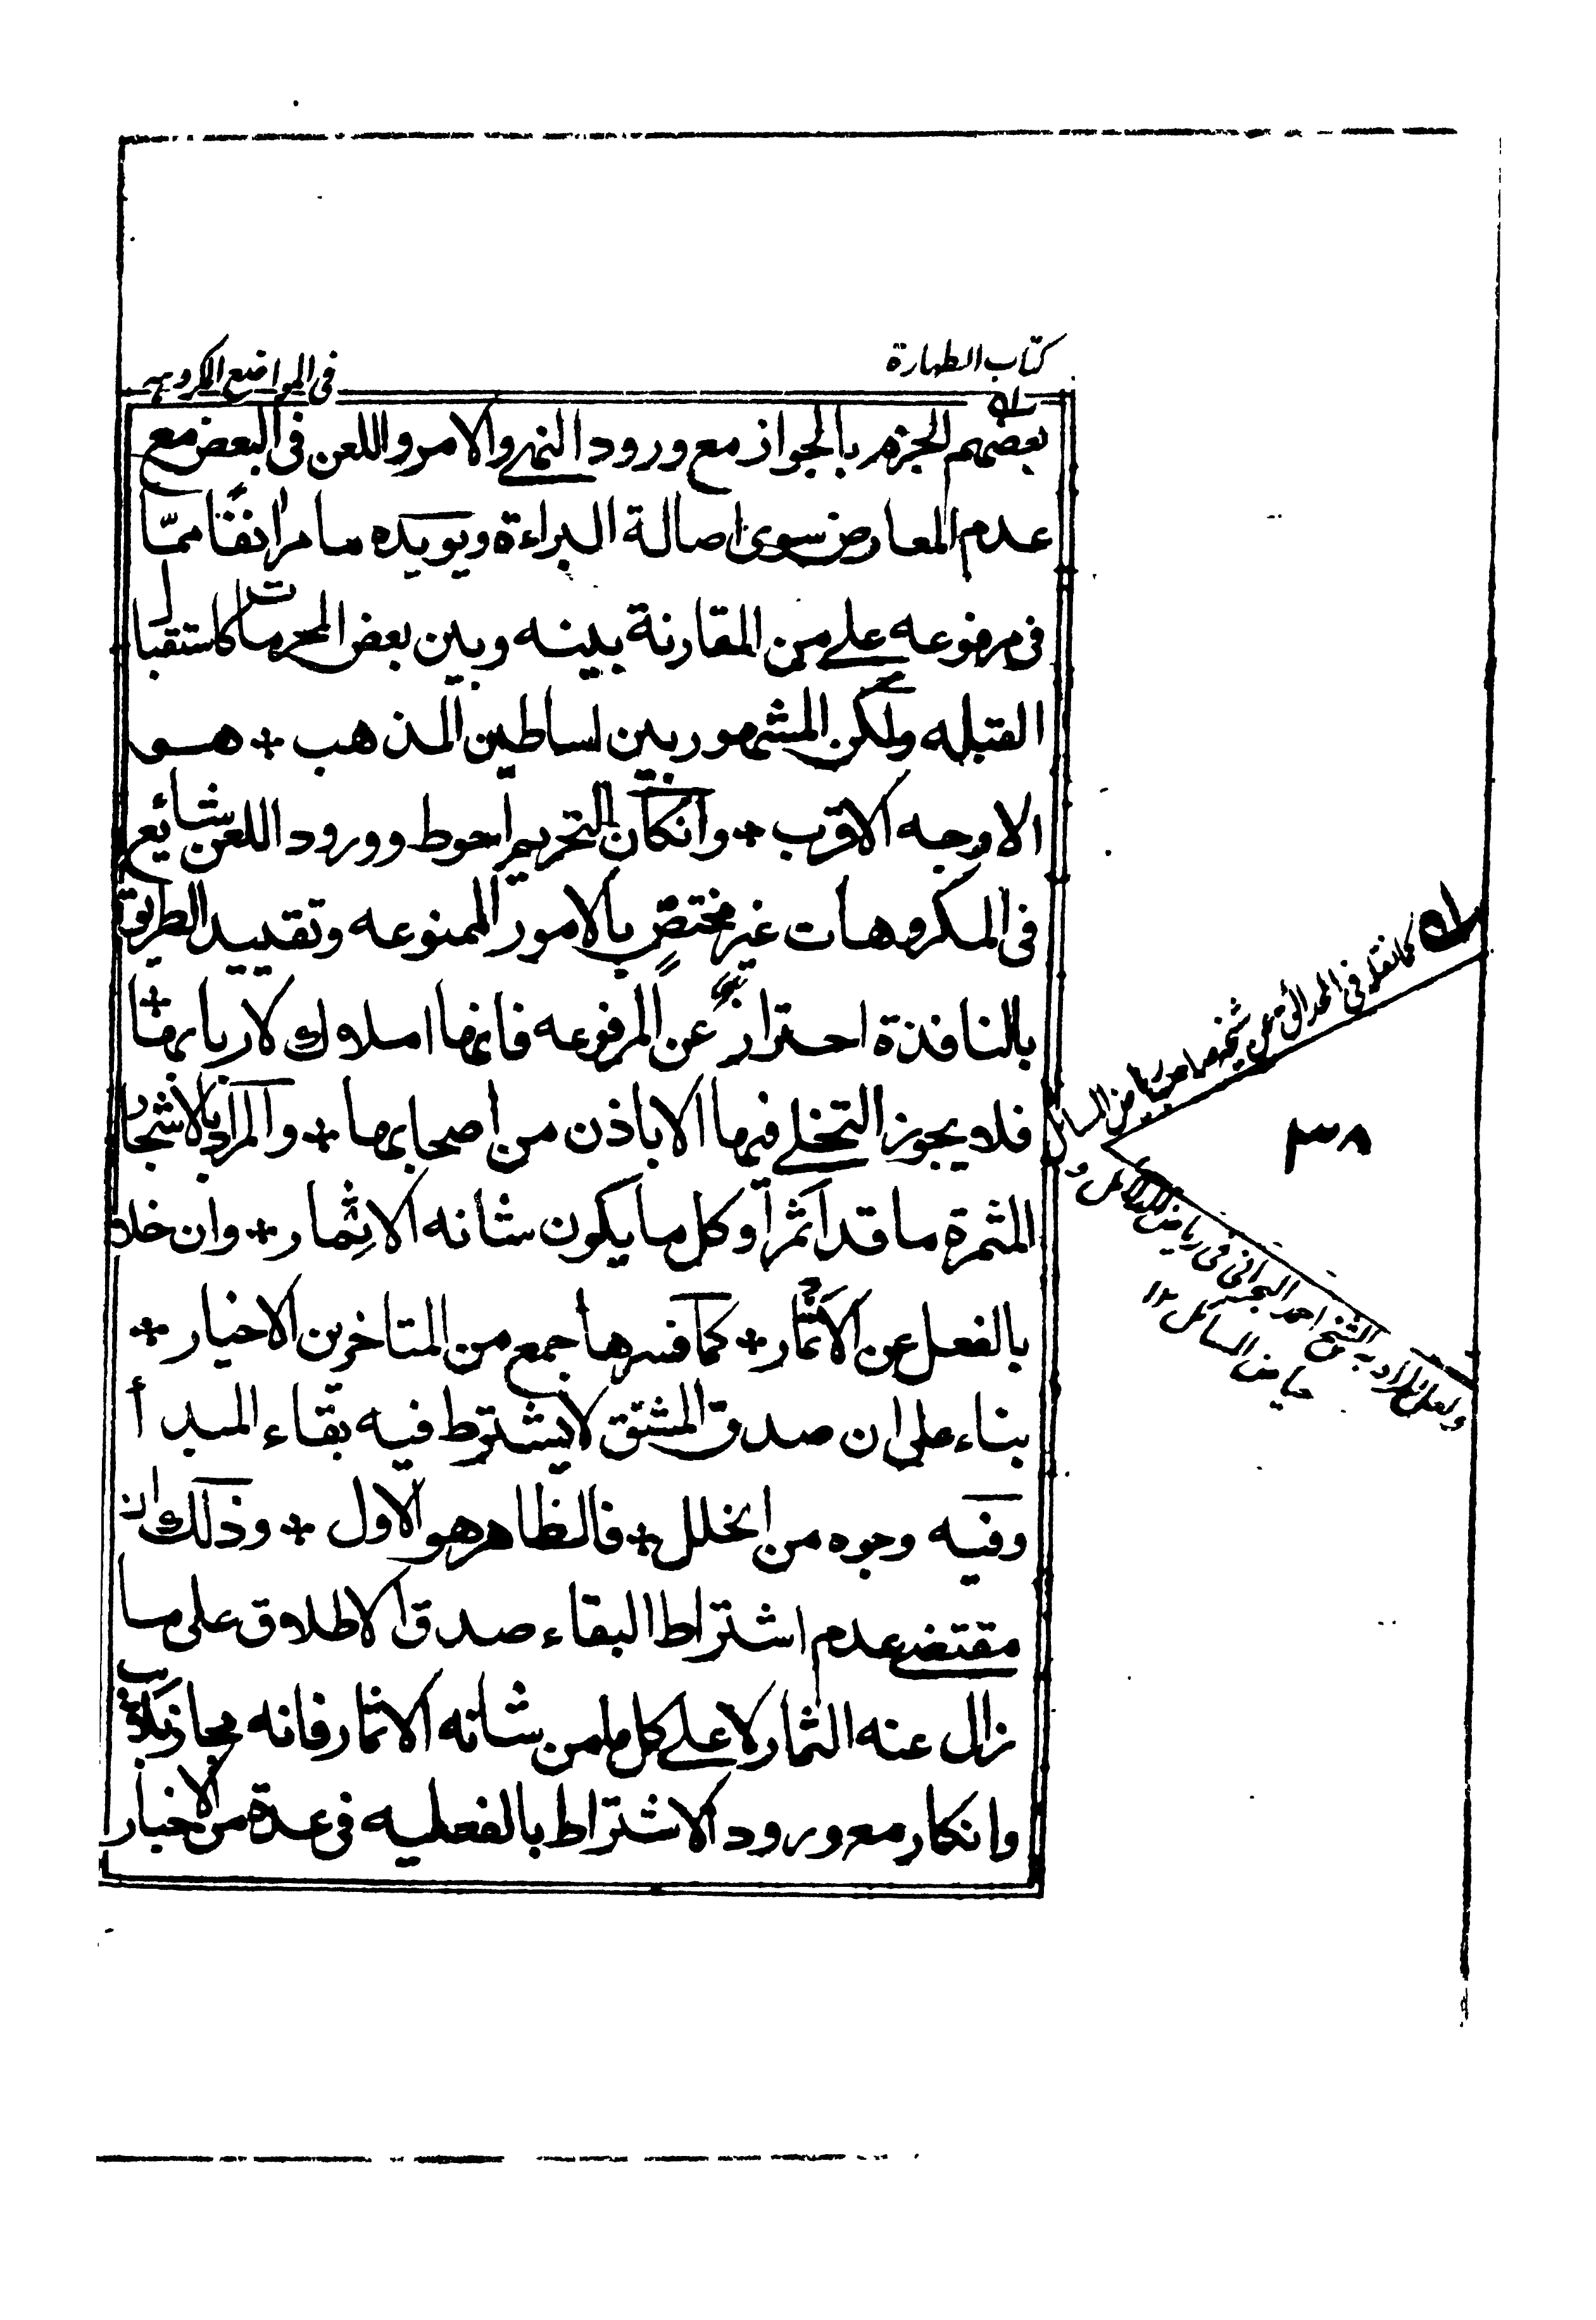 كتاب الطهارة
في المواضع المكروهه
بعضهم الجزم بالجواز مع ورود النهي والامر واللعن في البعض مع
عدم المعارض سوى اصالة البراءة ويويده ما مر انفًا ممّا
في مرفوعه علي من المقارنة بينه وبين بعض المحرمات كاستقبال
القبله ولكن المشهور بين اساطين المذهب * هو
الاوجه الاقرب * وانكان التحريم احوط وورود اللعن شائع
في المكروهات غير مختصٍّ بالامور الممنوعه وتقييد الطريق
بالنافذة احتراز عن المرفوعه فانها املاك لاربابها *
فلا يجوز التخلي فيها الا باذن من اصحابها * والمراد بالاشجار
المثمرة ما قد اثمر او كل ما يكون شانه الاثمار * وان خلا
بالفعل عن الاثمار * كما فسرها جمع من المتاخرين الاخيار *
بناء على ان صدق المشتق لا يشترط فيه بقاء المبدأ
وفيه وجوه من الخلل * فالظاهر هو الاول * وذلك لان
مقتضي عدم اشتراط البقاء صدق الاطلاق على ما
زال عنه الثمار لا علي كل ما من شانه الاثمار فانه مجاز بلا ريب
وانكار مع ورود الاشتراط بالفعليه في عدة من الاخبار
كما نقله في الحدائق عن شيخه صاحب رياض المسائل
٣٨
ولعل المراد به الشيخ احمد البحراني في رياض الدلائل و
حياض المسائل ١٢